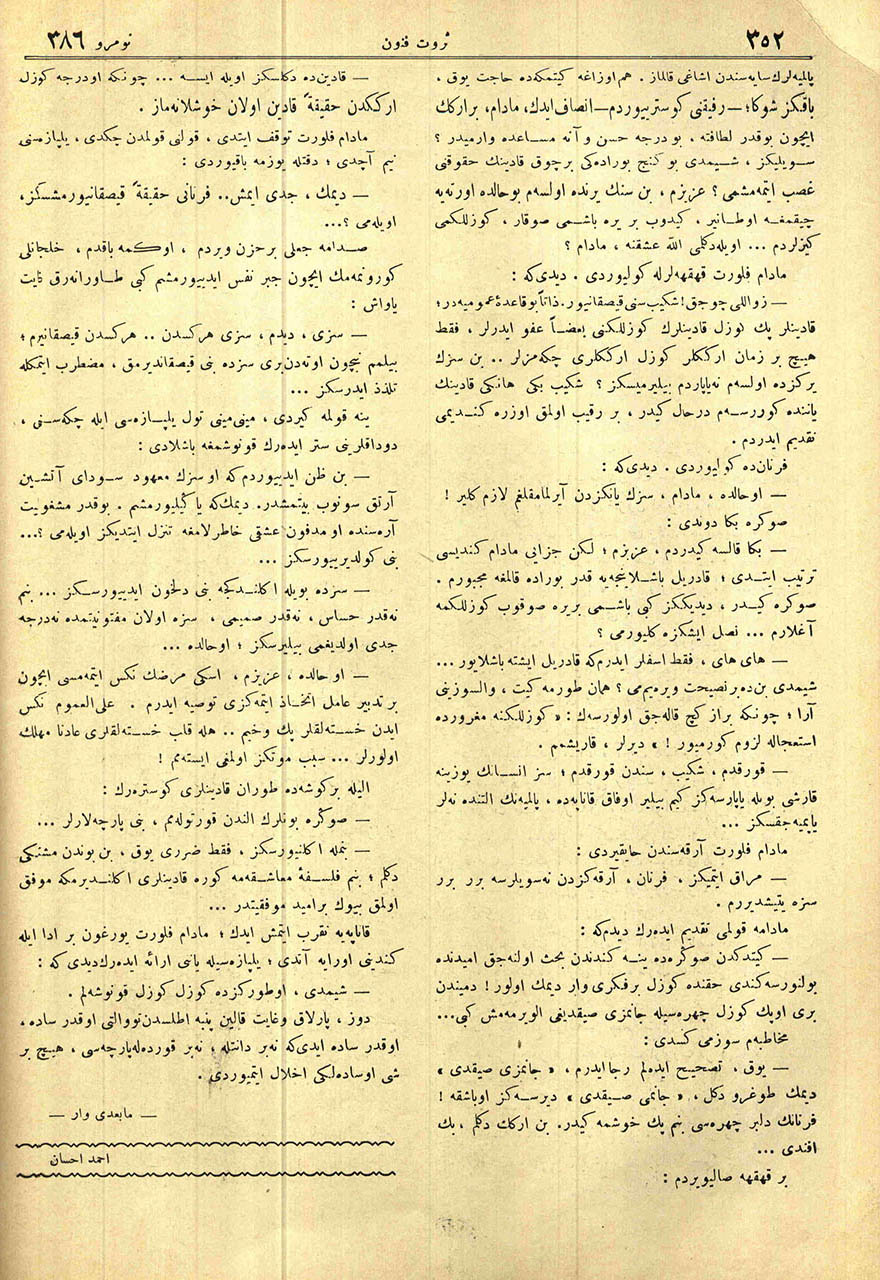 ٣٥٢
ثروت فنون
نومرو ٣٨٦
پالمیه‌لرك سایه‌سندن اشاغی قالماز . هم اوزاغه کیتمکده حاجت یوق ،
باقکز شوکا؛ — رفیقنی کوستریبوردم — انصاف ایدك، مادام، برارکك
ایچون بوقدر لطافته ، بو درجه حسن و آنه مساعده وارمیدر ؟
سویلیکز ، شیمدی بو کنج بوراده‌کی برچوق قادینك حقوقنی
غصب ایتمه‌مشمی ؟ عزیزم ، بن سنك یرنده اولسه‌م بوحالده اورته‌یه
چیقمغه اوطانیر ، کیدوب بر یره باشمی صوقار ، کوزللکمی
کیزلردم ... اویله‌دکلمی الله عشقنه ، مادام ؟
مادام فلورت قهقهه‌لرله کولیوردی . دیدی‌که :
— زواللی چوجق! شکیب سنی قیصقانیور. ذاتاً بو قاعدهٔ عمومیه‌در؛
قادینلر پك کوزل قادینلرك کوزللکنی بعضاً عفو ایدرلر ، فقط
هیچ بر زمان ارککلر کوزل ارککلری چکه‌مزلر .. بن سزك
یرکزده اولسه‌م نه‌یاپاردم بیلیرمیسکز ؟ شکیب بکی هانکی قادینك
یاننده کوررسه‌م درحال کیدر ، بر رقیب اولمق اوزره کندیمی
تقدیم ایدردم .
فرنان‌ده کولیوردی . دیدی‌که :
— اوحالده ، مادام ، سزك یانکزدن آیرلمامقلغم لازم کلیر !
صوکره بکا دوندی :
— بکا قالسه کیدردم ، عزیزم ؛ لکن جزایی مادام کندیسی
ترتیب ایتدی ؛ قادریل باشلانیجه‌یه قدر بوراده قالمغه مجبورم .
صوکره کیدر ، دیدیککز کبی باشمی بریره صوقوب کوزللکمه
آغلارم ... نصل ایشکزه کلیورمی ؟
— های های ، فقط اسفلر ایدرم‌که قادریل ایشته باشلایور ...
شیمدی بن‌ده برنصیحت ویره‌یم‌می ؟ همان طورمه کیت ، والسوزینی
آرا ؛ چونکه براز کچ قاله‌جق اولورسه‌ك : « کوزللکنه مغرورده
استعجاله لزوم کورمیور ! » دیرلر ، قاریشمم .
— قورقدم ، شکیب ، سندن قورقدم ؛ سز انسانك یوزینه
قارشی بویله یاپارسه‌کز کیم بیلیر اوفاق قاناپه‌ده ، پالمیه‌نك التنده نه‌لر
یاپمیه‌جقسکز ...
مادام فلورت آرقه‌سندن حایقیردی :
— مراق ایتمیکز ، فرنان ، آرقه‌کزدن نه‌سویلرسه برر برر
سزه یتیشدیررم .
مادامه قولمی تقدیم ایده‌رك دیدم‌که :
— کیتدکدن صوکره‌ده ینه کندندن بحث اولنه‌جق امیدنده
بولنورسه‌کندی حقنده کوزل برفکری وار دیمك اولور ! دمیندن
بری اوپك کوزل چهره‌سیله جانمزی صیقدیغی الویرمه‌مش کبی...
مخاطبه‌م سوزمی کسدی :
— یوق ، تصحیح ایده‌لم رجا ایدرم ، « جانمزی صیقدی »
دیمك طوغرو دکل ، « جانمی صیقدی » دیرسه‌کز اوباشقه !
فرنانك دلبر چهره‌سی بنم پك خوشمه کیدر. بن ارکك دکلم ، بك
افندی ...
بر قهقهه صالیویردم :
— قادین‌ده دکلسکز اویله ایسه ... چونکه اودرجه کوزل
ارککدن حقیقةً قادین اولان خوشلانه‌ماز .
مادام فلورت توقف ایتدی ، قولنی قولمدن چکدی ، یلپازه‌سنی
نیم آچدی ؛ دقتله یوزمه باقیوردی :
— دیمك ، جدی ایمش.. فرنانی حقیقةً قیصقانیورمشسکز،
اویله‌می ؟...
صدامه جعلی برحزن ویردم ، اوکمه باقدم ، خلجانلی
کورونمه‌مك ایچون جبر نفس ایدییورمشم کبی طاورانه‌رق غایت
یاواش :
— سزی ، دیدم ، سزی هرکسدن .. هرکسدن قیصقانیرم ؛
بیلمم نیچون اوته‌دن‌بری سزده بنی قیصقاندیرمق ، مضطرب ایتمکله
تلذذ ایدرسکز ...
ینه قولمه کیردی ، مینی‌مینی تول یلپازه‌سی ایله چکه‌سنی ،
دوداقلرینی ستر ایده‌رك قونوشمغه باشلادی :
— بن ظن ایدییوردم‌که اوسزك معهود سودای آتشین
آرتق سونوب بیتمشدر. دیمك‌که یاکیلیورمشم . بوقدر مشغولیت
آره‌سنده او مدفون عشقی خاطرلامغه تنزل ایتدیکز اویله‌می ؟...
بنی کولدیرییورسکز ...
— سزده بویله اکلندکجه بنی دلخون ایدییورسکز ... بنم
نه‌قدر حساس ، نه‌قدر صمیمی ، سزه اولان مفتونیتمده نه‌درجه
جدی اولدیغمی بیلیرسکز ؛ اوحالده ...
— اوحالده ، عزیزم ، اسکی مرضك نکس ایتمه‌مسی ایچون
بر تدبیر عاجل اتخاذ ایتمه‌کزی توصیه ایدرم . علی‌العموم نکس
ایدن خسته‌لقلر پك وخیم .. هله قلب خسته‌لقلری عادتا مهلك
اولورلر ... سبب موتکز اولمغی ایسته‌مم !
الیله برکوشه‌ده طوران قادینلری کوستره‌رك :
— صوکره بونلرك الندن قورتوله‌مم ، بنی پارچه‌لارلر ...
— بنمله اکلنیورسکز ، فقط ضرری یوق ، بن بوندن مشتکی
دکلم ؛ بنم فلسفهٔ معاشقه‌مه کوره قادینلری اکلندیرمکه موفق
اولمق بیوك برامید موفقیتدر ...
قاناپه‌یه تقرب ایتمش ایدك ؛ مادام فلورت یورغون بر ادا ایله
کندینی اورایه آتدی ؛ یلپازه‌سیله یاننی ارائه ایده‌رك‌دیدی‌که :
— شیمدی ، اوطورکزده کوزل کوزل قونوشه‌لم .
دوز ، پارلاق وغایت قالین پنبه اطلسدن‌تووالتی اوقدر ساده ،
اوقدر ساده ایدی‌که نه‌بر دانتله ، نه‌بر قورده‌له‌پارچه‌سی ، هیچ بر
شی اوساده‌لکی اخلال ایتمیوردی .
— مابعدی وار —
احمد احسان